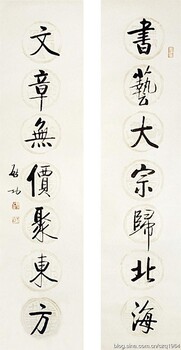 書藝大宗歸北海
文章無價聚東方
啟功
blog.sina.com.cn/azq1964